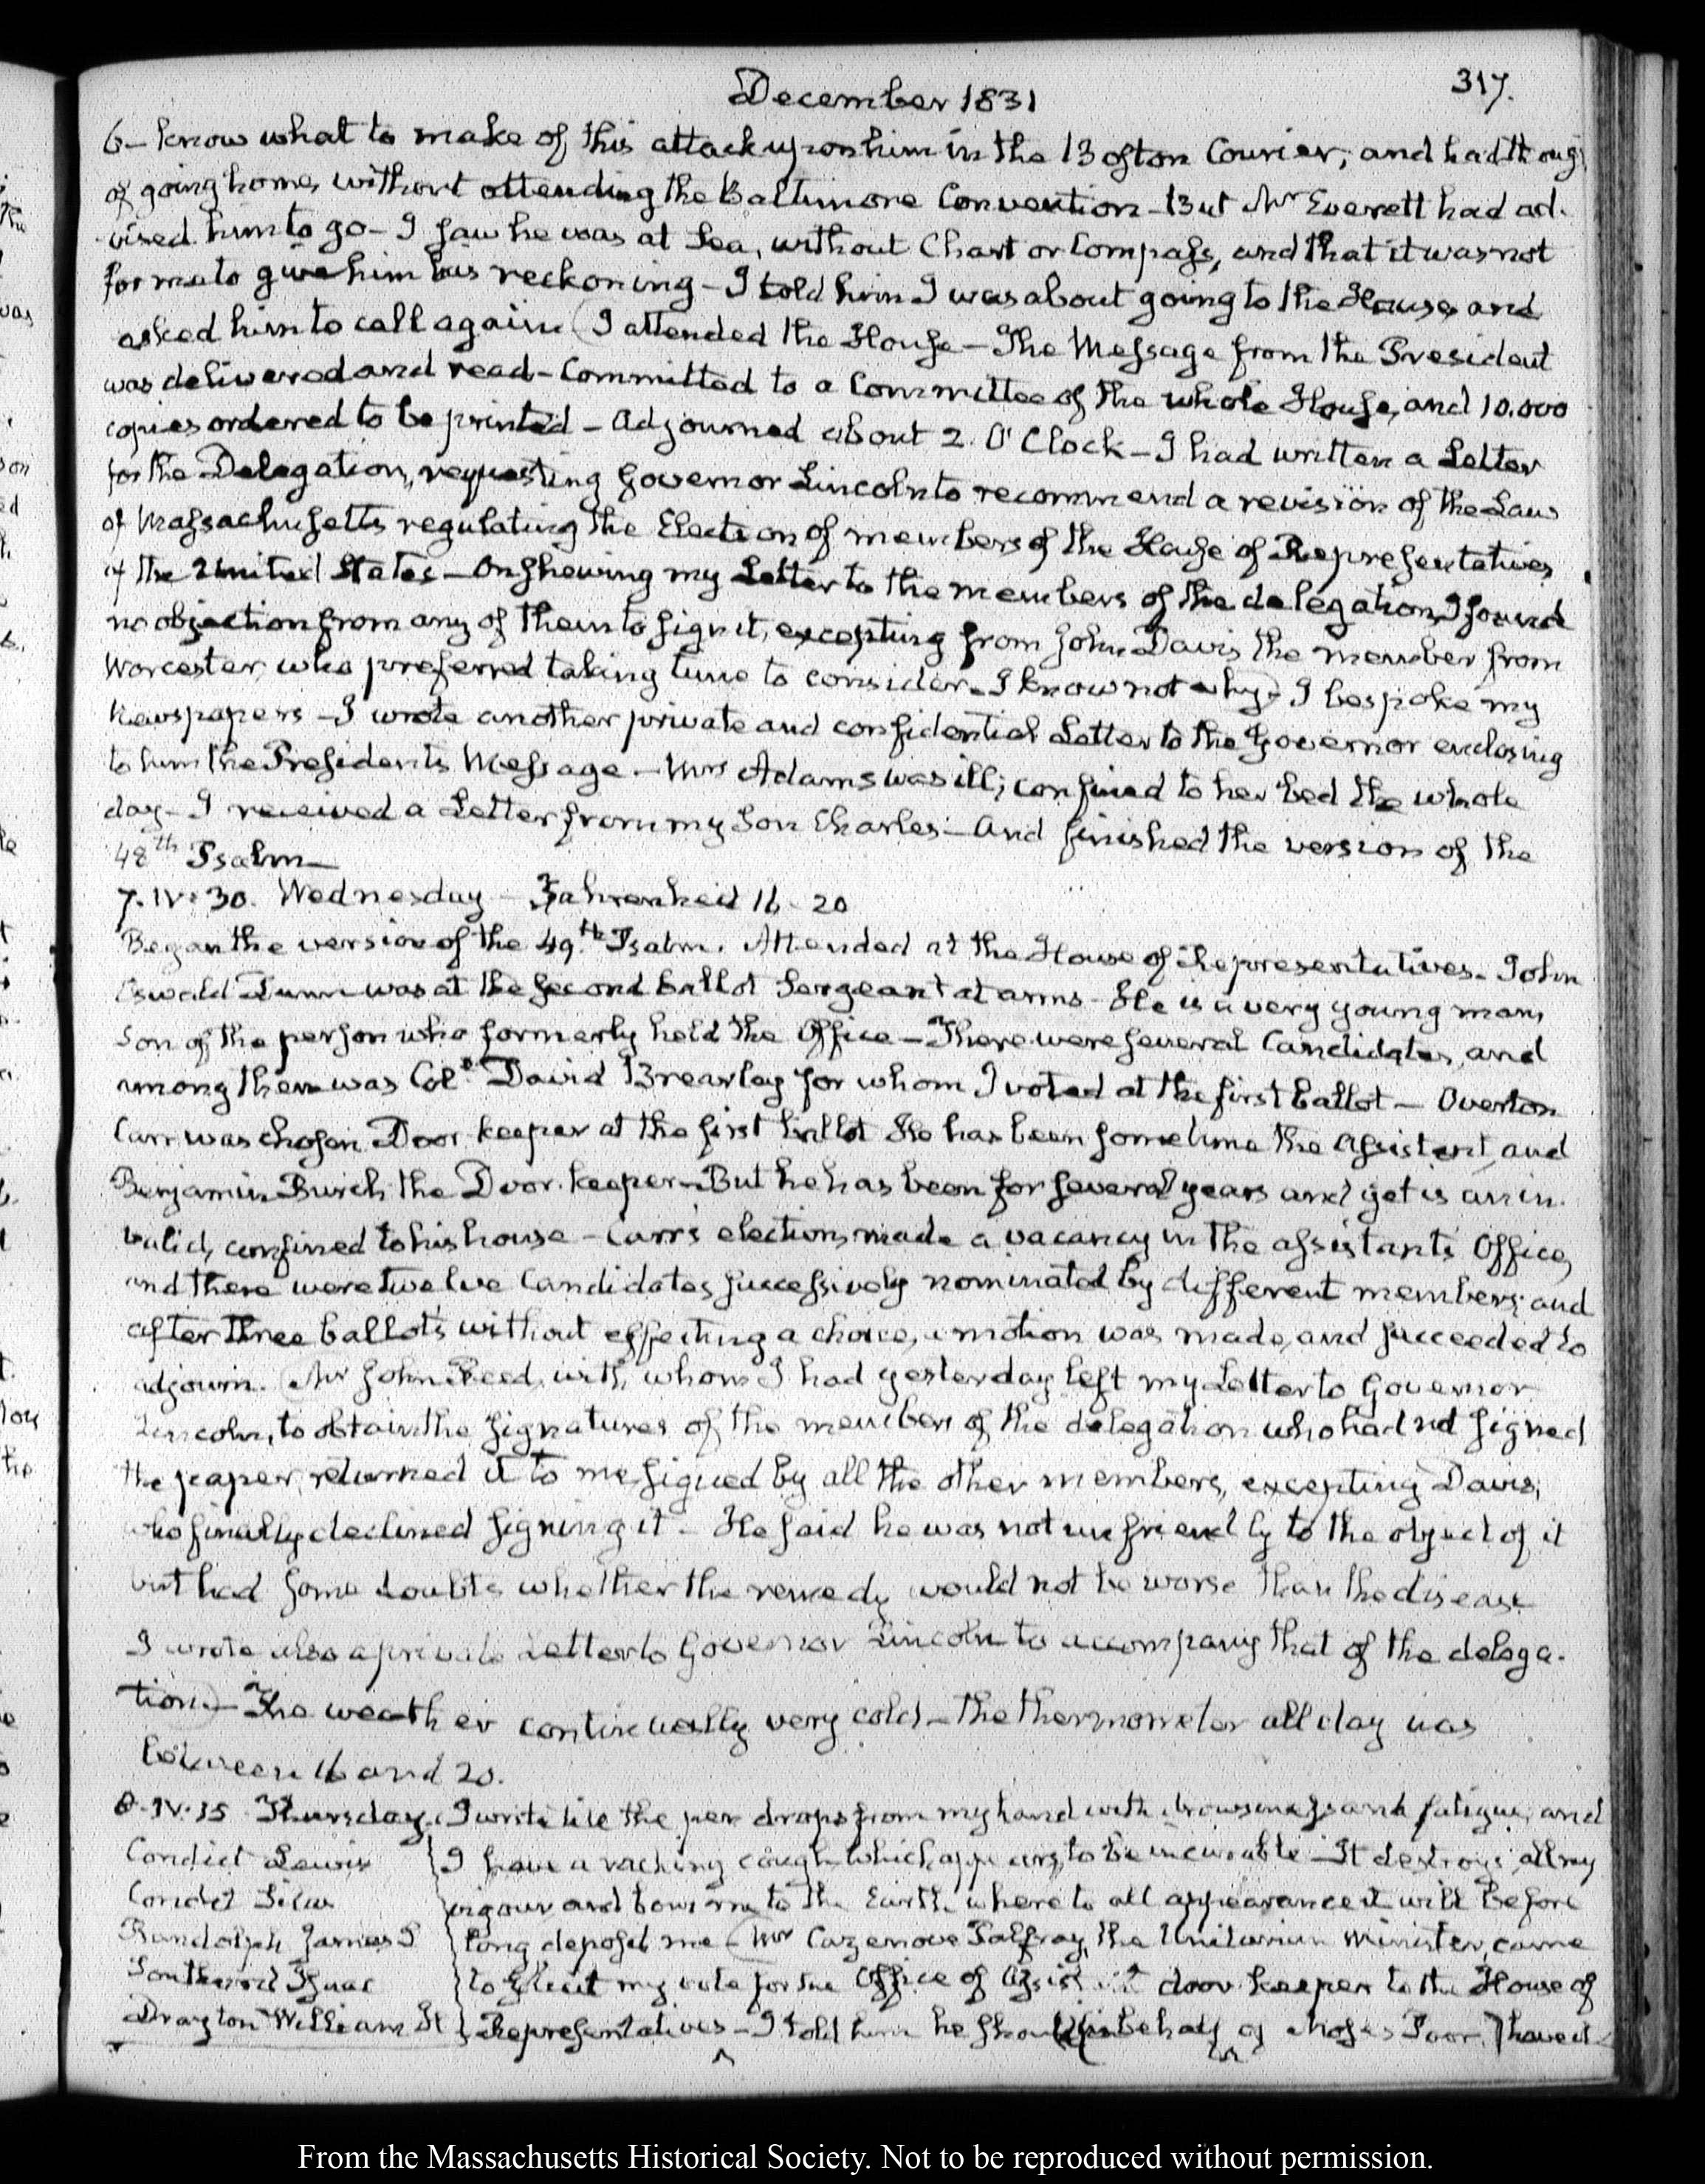 December 1831
317.
6 – know what to make of this attack upon him in the Boston Courier; and had thoug
of going home, without attending the Baltimore Convention – But Mr Everett had ad-
vised him to go – I saw he was at Sea, without Chart or Compass, and that it was not
for me to give him his reckoning – I told him I was about going to the House, and
asked him to call again (I attended the House – The Message from the President
was delivered and read – Committed to a Committee of the whole House, and 10.000
copies ordered to be printed – Adjourned about 2. O'Clock – I had written a Letter
for the Delegation, requesting Governor Lincoln to recommend a revision of the Law
of Massachusetts regulating the Election of members of the House of Representatives
of the United States – On shewing my Letter to the members of the delegation, I found
no objection from any of them to sign it, excepting from John Davis the member from
Worcester, who preferred taking time to consider – I know not why) – I bespoke my
Newspapers – I wrote another private and confidential Letter to the Governor enclosing
to him the President's Message – Mrs Adams was ill; confined to her bed the whole
day – I received a Letter from my Son Charles – And finished the version of the
48th Psalm –
7. IV: 30. Wednesday – Fahrenheit 16 – 20
Began the version of the 49th Psalm. Attended at the House of Representatives – John
Oswald Dunn was at the second ballot Sergeant at arms – He is a very young man,
Son of the person who formerly held the Office – There were several Candidates, and
among them was Coll David Brearley for whom I voted at the first ballot – Overton
Carr was chosen Door-keeper at the first ballot He has been sometime the Assistant, and
Benjamin Burch the Door-keeper – But he has been for several years and yet is an in-
valid, confined to his house – Carr's election, made a vacancy in the assistant's Office,
and there were twelve Candidates successively nominated by different members; and
after three ballots without effecting a choice, a motion was made, and succeeded to
adjourn. (Mr John Reed, with whom I had yesterday left my Letter to Governor
Lincoln, to obtain the signatures of the members of the delegation who had not signed
the paper, returned it to me signed by all the other members, excepting Davis;
who finally declined signing it – He said he was not unfriendly to the object of it
but had some doubts whether the remedy would not be worse than the disease
I wrote also a private Letter to Governor Lincoln to accompany that of the delega-
tion.) – The weather continually very cold – the thermometer all day was
between 16 and 20.
8. IV: 15 Thursday. I write till the pen drops from my hand with drowsiness and fatigue, and
Condict Lewis
I have a racking cough which appears, to be incurable – It destroys all my
Condit Silas
vigour and bows me to the Earth, where to all appearance it will before
Randolph James F
long deposit me – (Mr Cazenove Palfrey, the Unitarian Minister, came
Southard Isaac
to solicit my vote for the Office of Assistant door-keeper to the House of
Drayton William St
Representatives – I told him he should in behalf of Moses Poor, have it